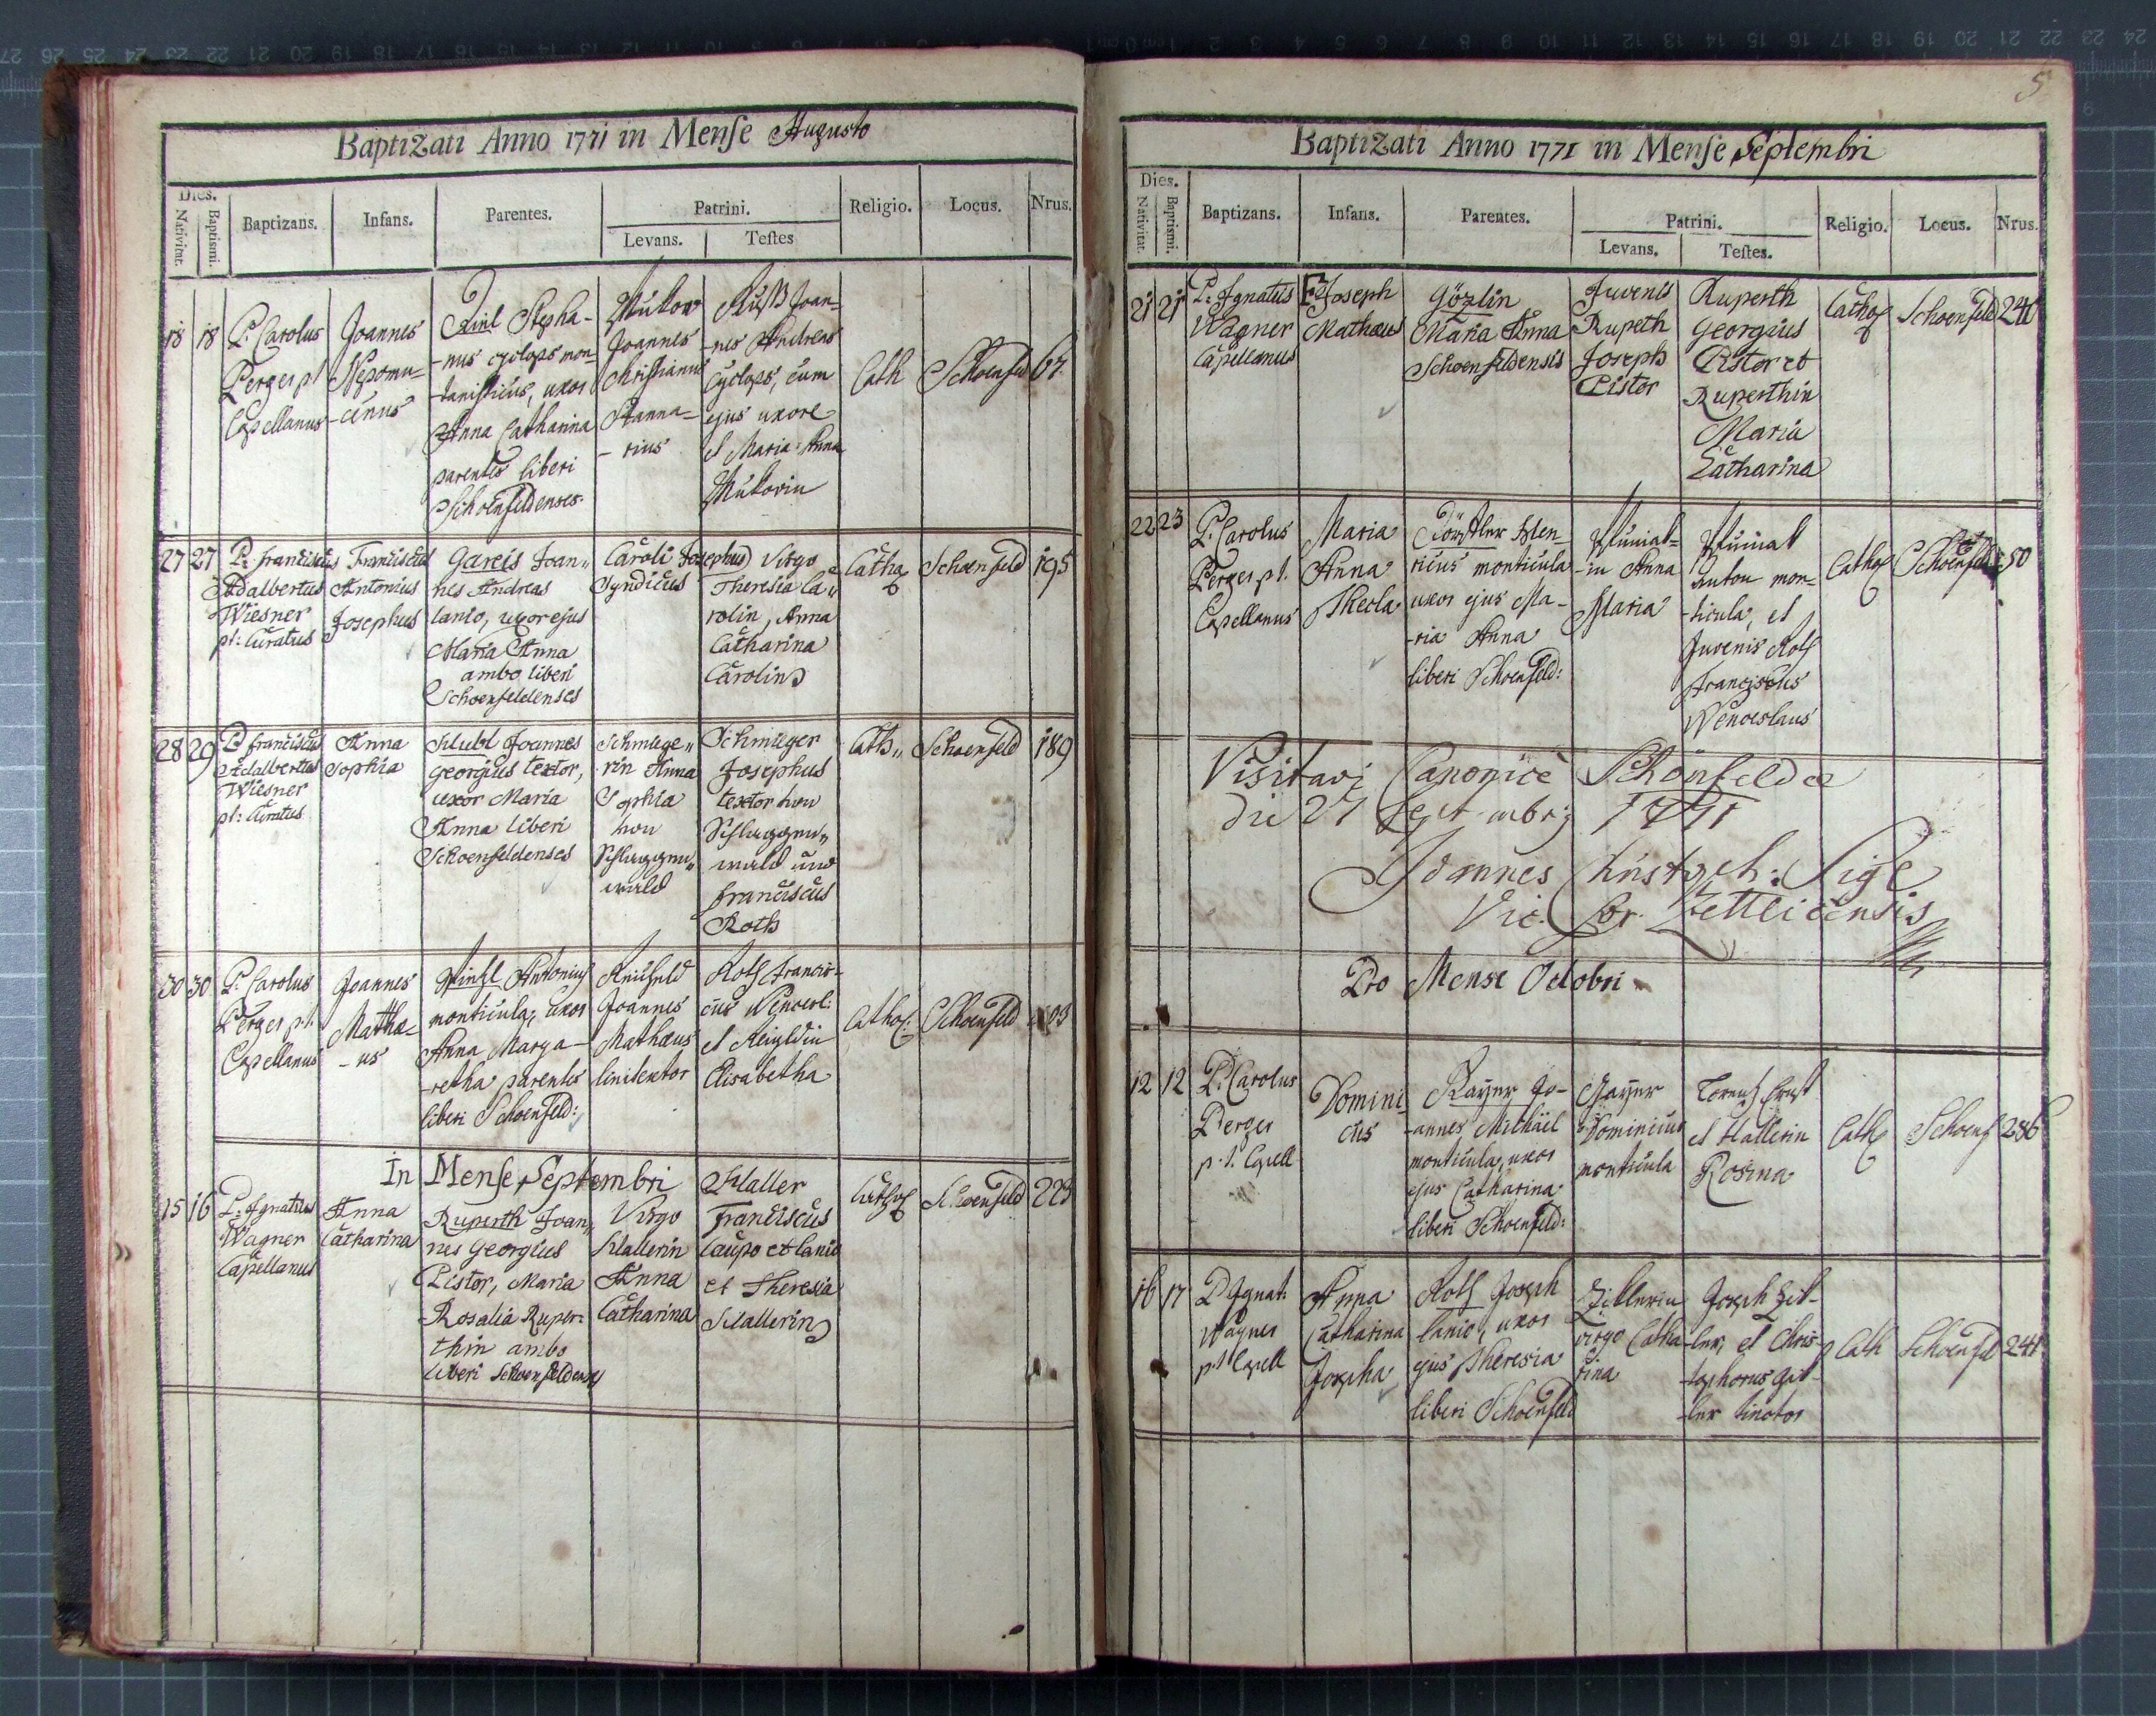 Baptizati Anno 1771 in Mense Augusto
Dies. Nativitat. Baptismi. Baptizans. Infans. Parentes. Patrini. Levans. Testes Religio. Locus. Nrus.
18 18
P. Carolus
Perger pt
Capellanus
Joannes
Nepomu-
-cenus
Stepha-
-nus cyclops mon-
-tanisticus, uxor
Anna Catharina
parentes liberi
Schoenfeldenses
Joannes
Christianus
Stanna-
-rius
Joan-
-nes Andreas
Cyclops, cum
ejus uxore
et Maria Anna
Cath
Schoenfeld
67
27 27
P. Franciscus
Adalbertus
Wiesner
pt: Curatus
Franciscus
Antonius
Josephus
Gareis Joan„
nes Andreas
lanio, uxor ejus
Maria Anna
ambo liberi
Schoenfeldenses
Caroli Josephus
Syndicus
Virgo
Theresia Ca„
rolin, Anna
Catharina
Carolin
Cathol
Schoenfeld
195
28 29
P. Franciscus
Adalbertus
Wiesner
pt: Curatus
Anna
Sophia
Klubl Joannes
Georgius textor,
uxor Maria
Anna liberi
Schoenfeldenses
Schmiege„
rin Anna
Sophia
von
Schlaggen„
wald
Schmieger
Josephus
textor von
Schlaggen„
wald und
Franciscus
Roth
Cath„
Schoenfeld
189
30 30
P. Carolus
Perger pt.
Capellanus
Joannes
Mathae-
-us
Antonius
monticula, uxor
Anna Marga-
-retha parentes
liberi Schoenfeld:
Joannes
Mathaeus
linitextor
Roth Francis-
cus Wencesl:
et
Elisabetha
Cathol:
Schoenfeld
In Mense Septembri
15 16
P. Ignatius
Wagner
Capellanus
Anna
Catharina
Ruperth Joan„
nes Georgius
Pistor, Maria
Rosalia Ruper-
thin ambo
liberi Schoenfeldens
Virgo
Hallerin
Anna
Catharina
Haller
Franciscus
Caupo et lanio
et Theresia
Hallerin
Cathol
Schoenfeld
223
5
Baptizati Anno 1771 in Mense Septembri
Dies. Nativitat. Baptismi. Baptizans. Infans. Parentes. Patrini. Levans. Testes. Religio. Locus. Nrus.
21 21
P. Ignatius
Wagner
Capellanus
Joseph
Mathaeus
Gözlin
Maria Anna
Schoenfeldensis
Juvenis
Rupeth
Joseph
Pistor
Ruperth
Georgius
Pistor et
Ruperthin
Maria
Catharina
Cathol
Schoenfeld
240
22 23
P. Carolus
Perger pt.
Capellanus
Maria
Anna
Thecla
Hen-
ricus monticula
uxor ejus Ma-
-ria Anna
liberi Schoenfeld:
-in Anna
Maria
Anton mon-
-ticula, et
Juvenis Roth
Franciscus
Wenceslaus
Cathol
Schoenfeld
50
Visitavi Canonicè Schönfeldae
Die 27 Septembris 1771
Joannes Christoph:
Vic. For. Zettlicensis
Pro Mense Octobri
12 12
P. Carolus
Perger
p. t. Capell
Domini-
cus
Jo-
-annes Michäel
monticula, uxor
ejus Catharina
liberi Schoenfeld:
Dominicus
monticula
Lorenz Ernst
et Hallerin
Rosina
Cath
Schoenf
286
16 17
P Ignat:
Wagner
pt Capell
Anna
Catharina
Josepha
Roth Joseph
lanio, uxor
ejus Theresia
liberi Schoenfeld
virgo Catha-
rina
Joseph
et Chris-
-tophorus
Cath
Schoenfeld
241